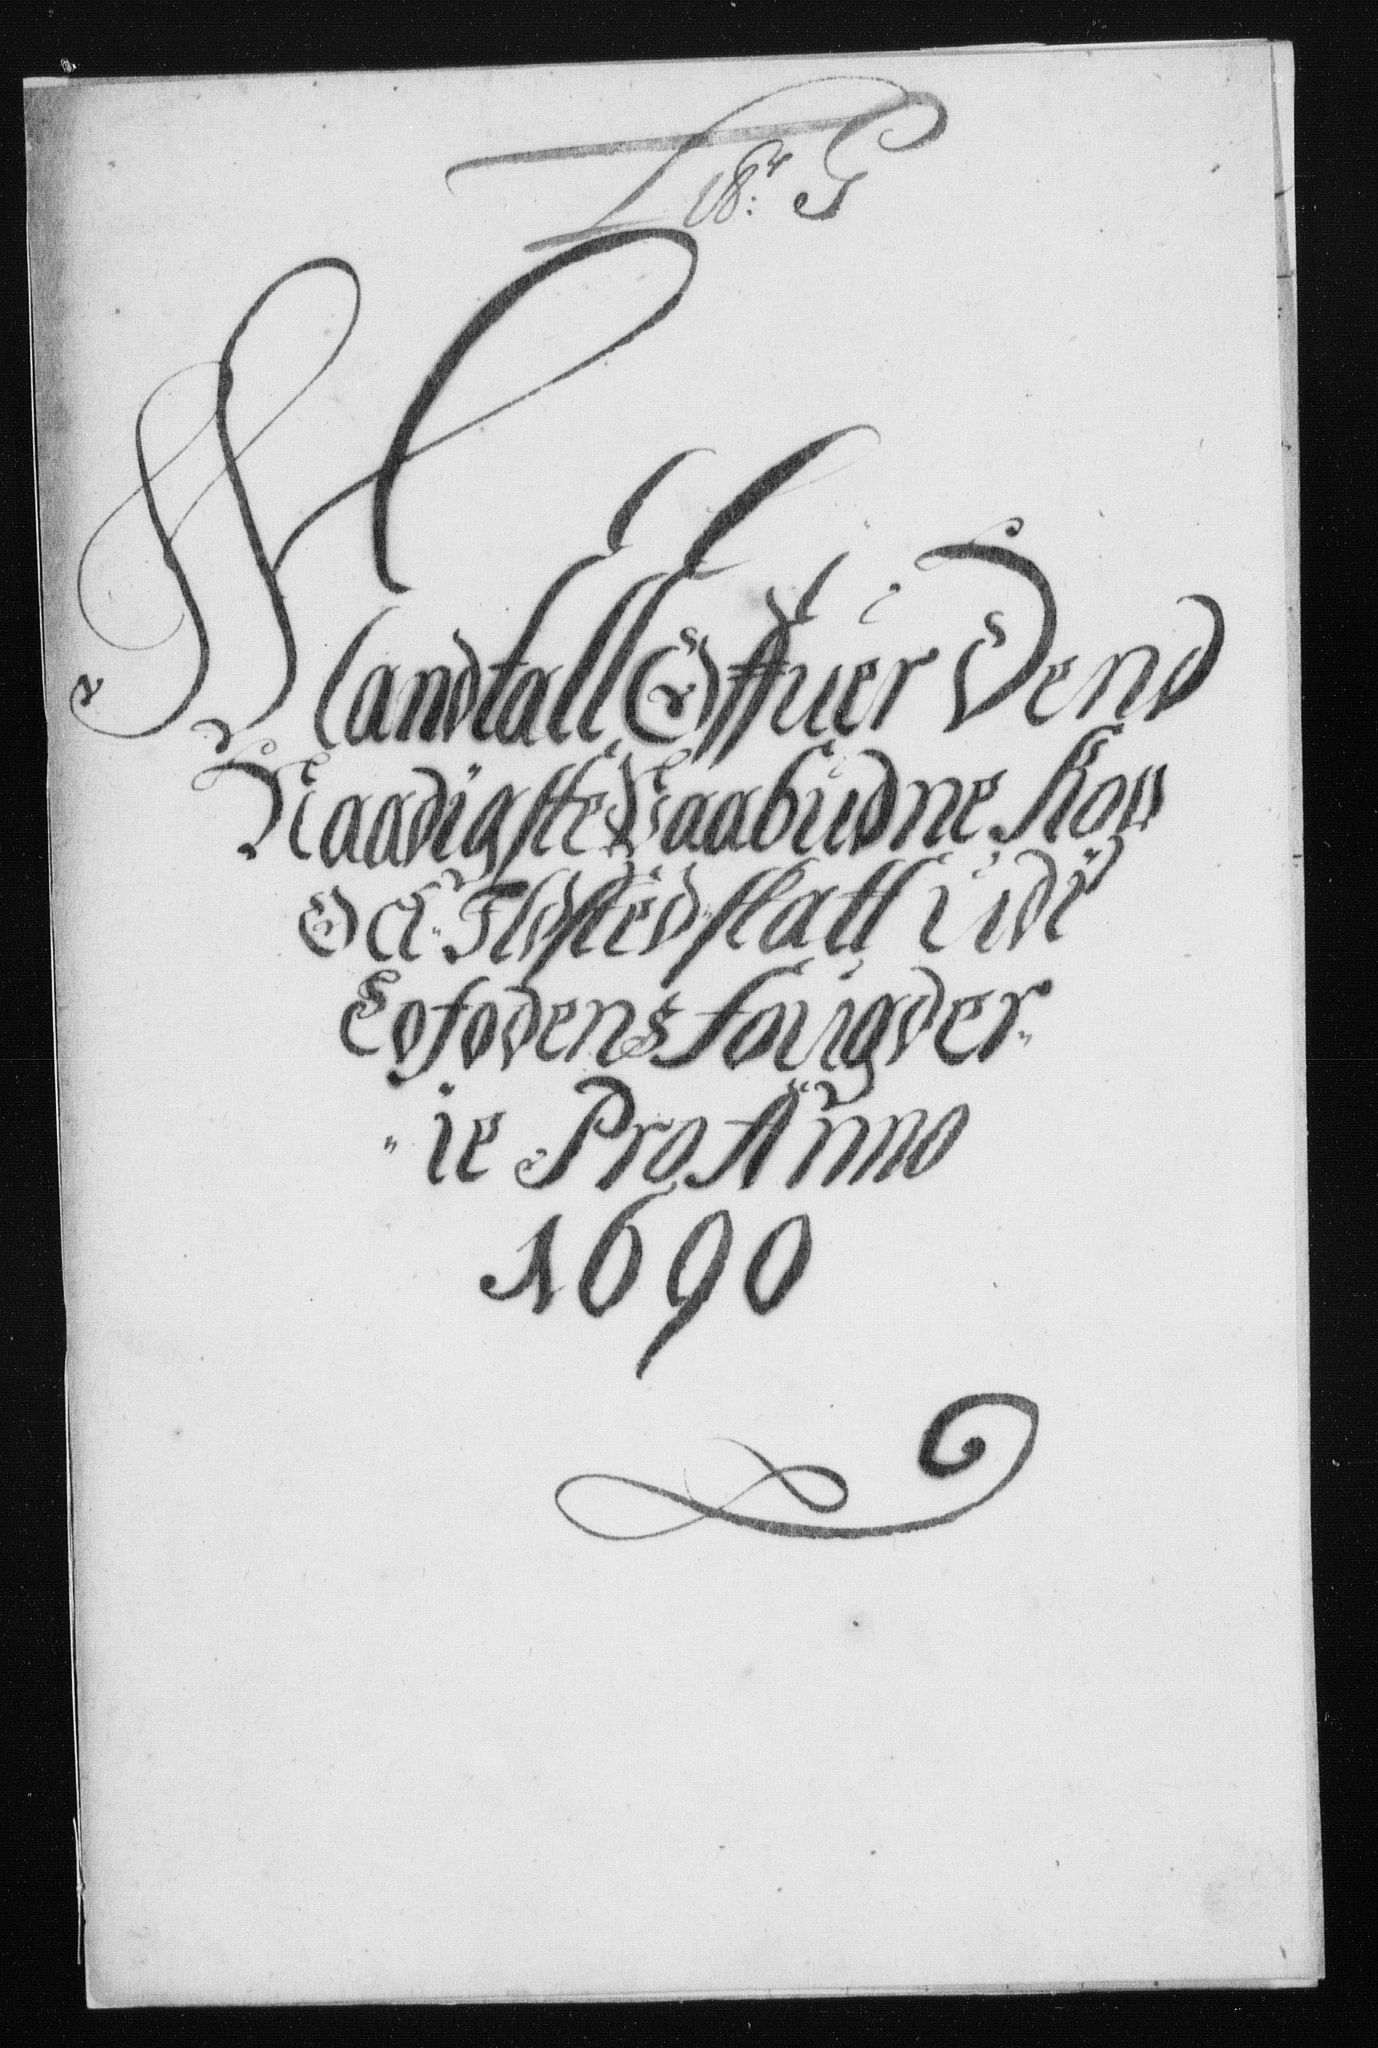 Lit: G
Mandtall Offuer Dend
Naadigste Paabüdne Kop
Och Ildsted skatt üdi
Lofodens fougder„
„ie Pro Anno
1690